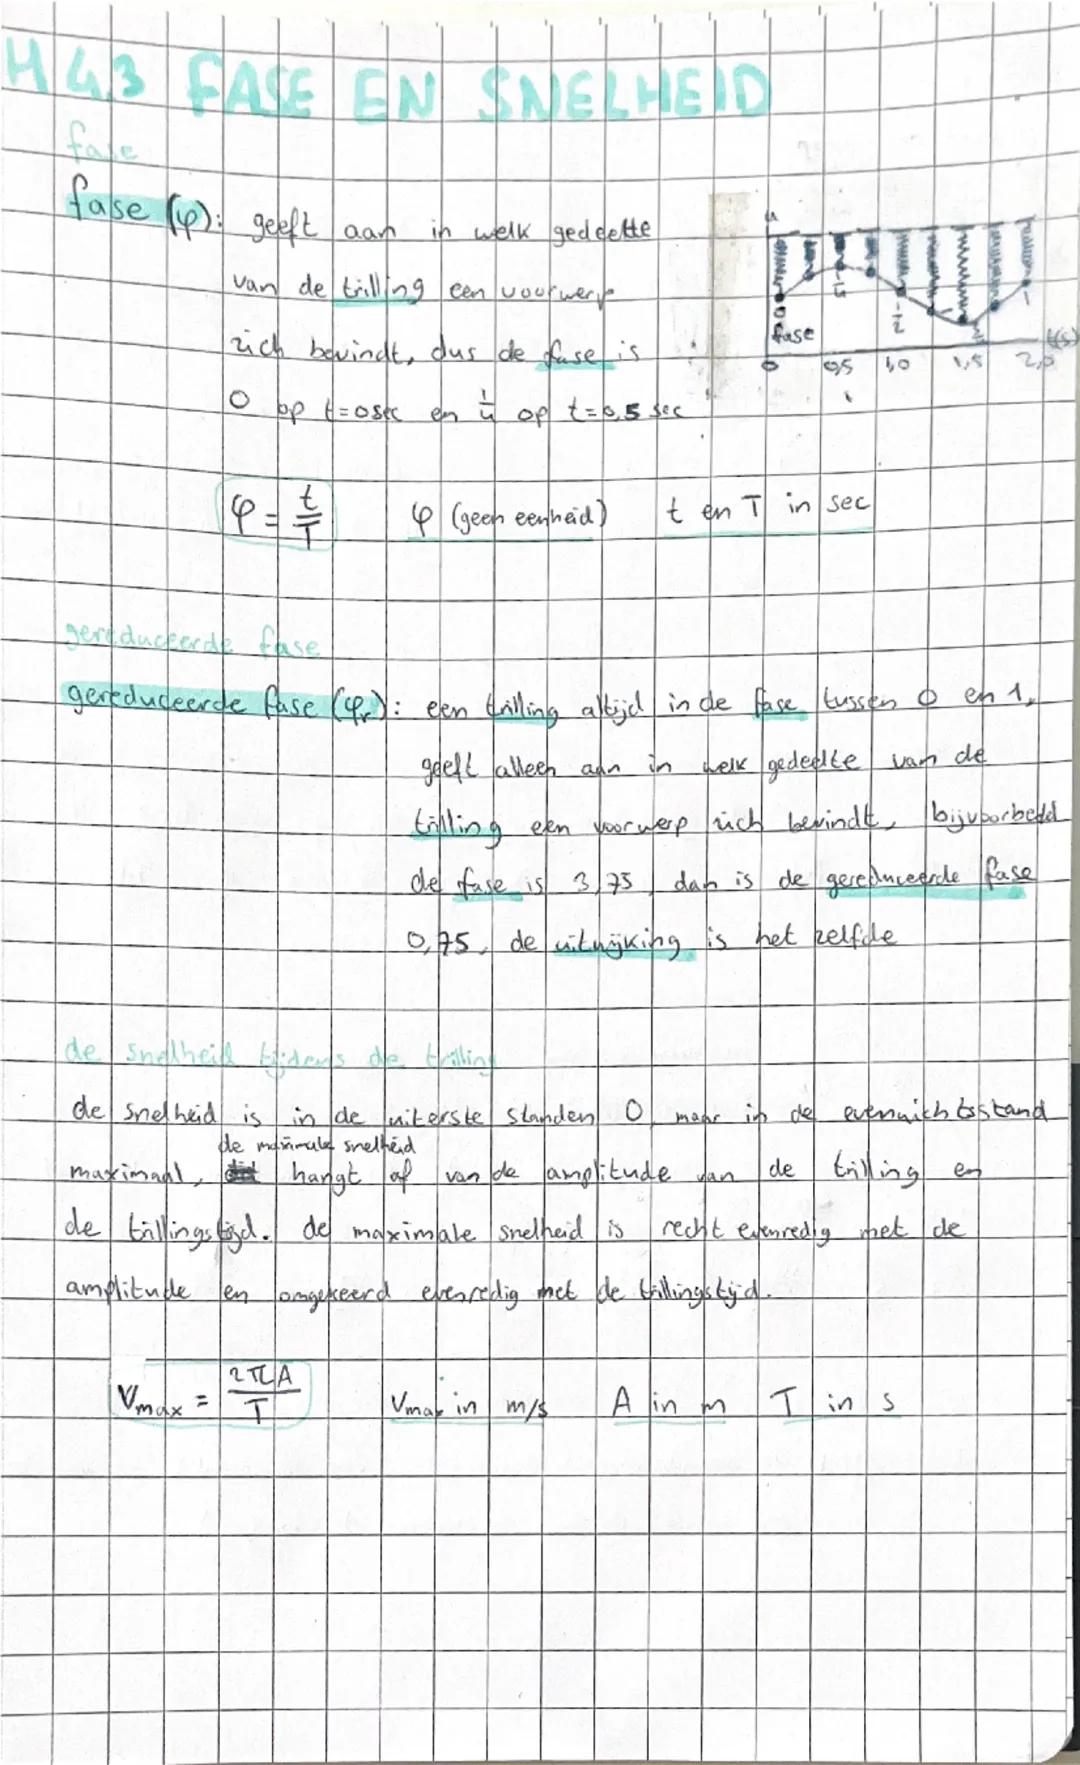 H4.3 FASE EN SNELHEID
fase
fase (φ): geeft aan in welk gedeelte
van de trilling een voorwerp
zich bevindt, dus de fase is
0 op t=0sec en 1/4 op t=0,5 sec
u
0 1/4 1/2 3/4 1
fase
t(s)
0 0,5 1,0 1,5 2,0
φ = t/T φ (geen eenheid) t en T in sec
gereduceerde fase
gereduceerde fase (φr): een trilling altijd in de fase tussen 0 en 1,
geeft alleen aan in welk gedeelte van de
trilling een voorwerp zich bevindt, bijvoorbeeld
de fase is 3,75, dan is de gereduceerde fase
0,75, de uitwijking is het zelfde
de snelheid tijdens de trilling
de snelheid is in de uiterste standen 0 maar in de evenwichtsstand
de maximale snelheid
maximaal, hangt af van de amplitude van de trilling en
de trillingstijd. de maximale snelheid is recht evenredig met de
amplitude en omgekeerd evenredig met de trillingstijd.
Vmax = 2πA/T Vmax in m/s A in m T in s